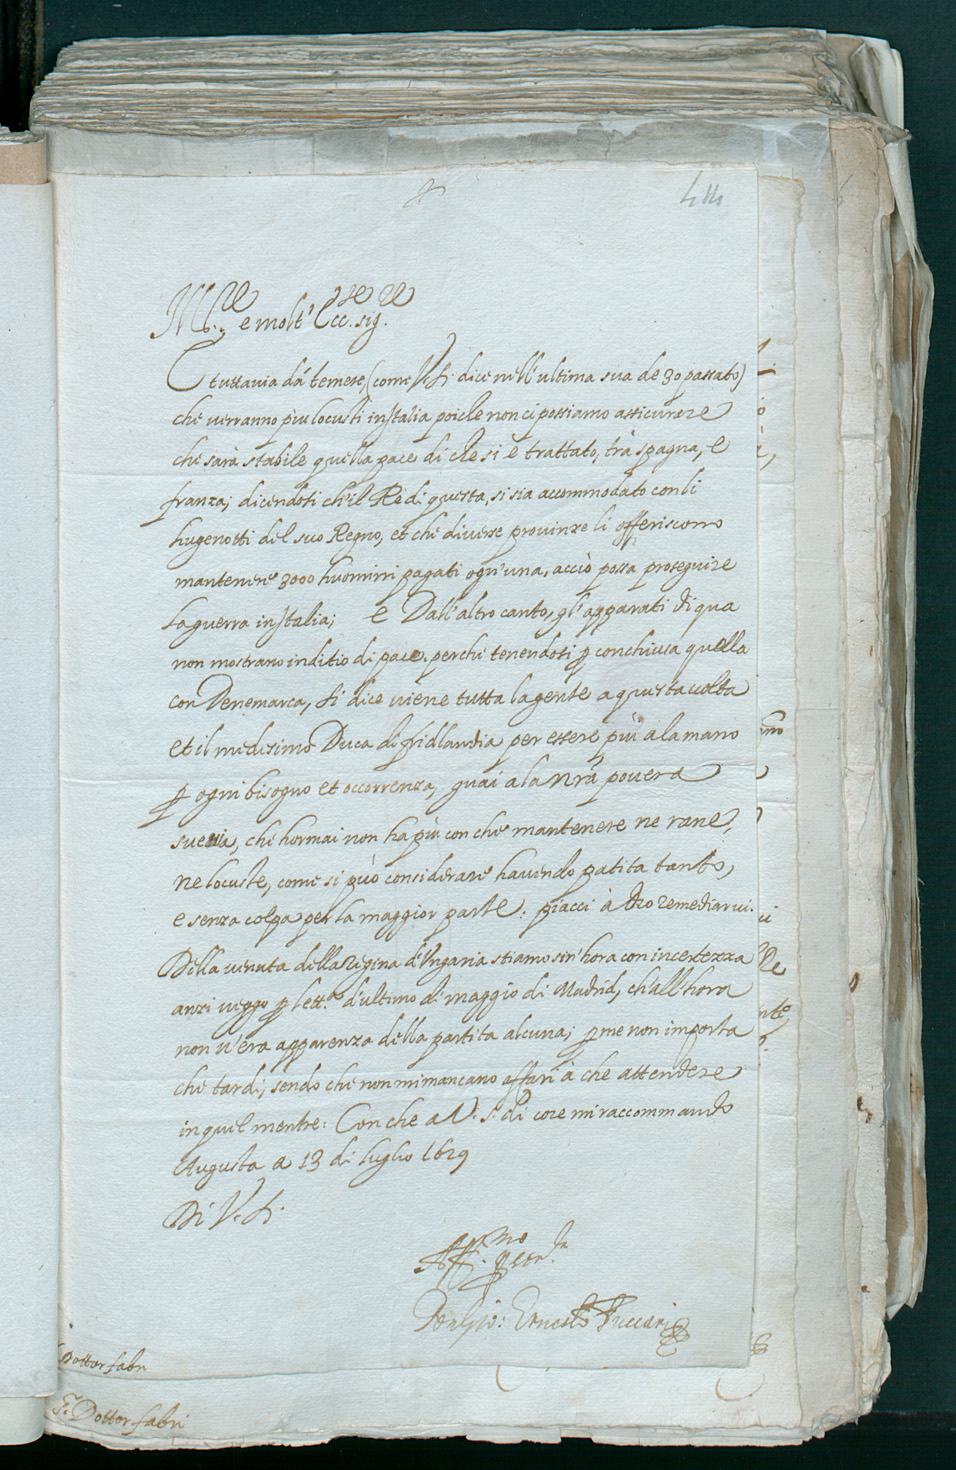 414
M.re e molt' Ecc.te sig.re
E tuttauia da temere, (come V.S. dice nell' ultima sua de 30 passato)
che uerranno piu locusti in Italia poiche non ci possiamo assicurare
che sarà stabile quella pace di che si è trattato, trà spagna, e
franza; dicendosi ch'il Rè di questa, si sia accommodato con li
hugenotti del suo Regno, et che diuerse prouinze li offeriscono
mantenere 3000 huomini pagati ogn'una, acciò possa proseguire
la guerra in Italia; e Dall'altro canto, gl'apparati di qua
non mostrano inditio di pace, perche tenendosi p conchiusa quella
con Denemarca, si dice uiene tutta la gente a questa uolta
et il medesimo Duca di fridlandia per essere più a la mano
p ogni bisogno et occorrenza, guai a la nrã pouera
sueuia, che hormai non ha più con che mantenere ne rane,
ne locuste, come si può considerare hauendo patita tanto,
e senza colpa per la maggior parte: piacci à Dio remediarui.
Della uenuta della Regina d'Vngaria stiamo sin'hora con incertezza
anzi ueggo p lett.e d'ultimo di maggio di Madrid, ch'all'hora
non u'era apparenza della partita alcuna; p me non importa
che tardi, sendo che non mi mancano affari à che attendere
in quel mentre: Con che a V. S. di core mi raccommando
Augusta a 13 di luglio 1629
Di V. S.
Aff.mo p ser.la
Gio: Ernesto Fuccari
Dottor fabri
S. Dottor fabri